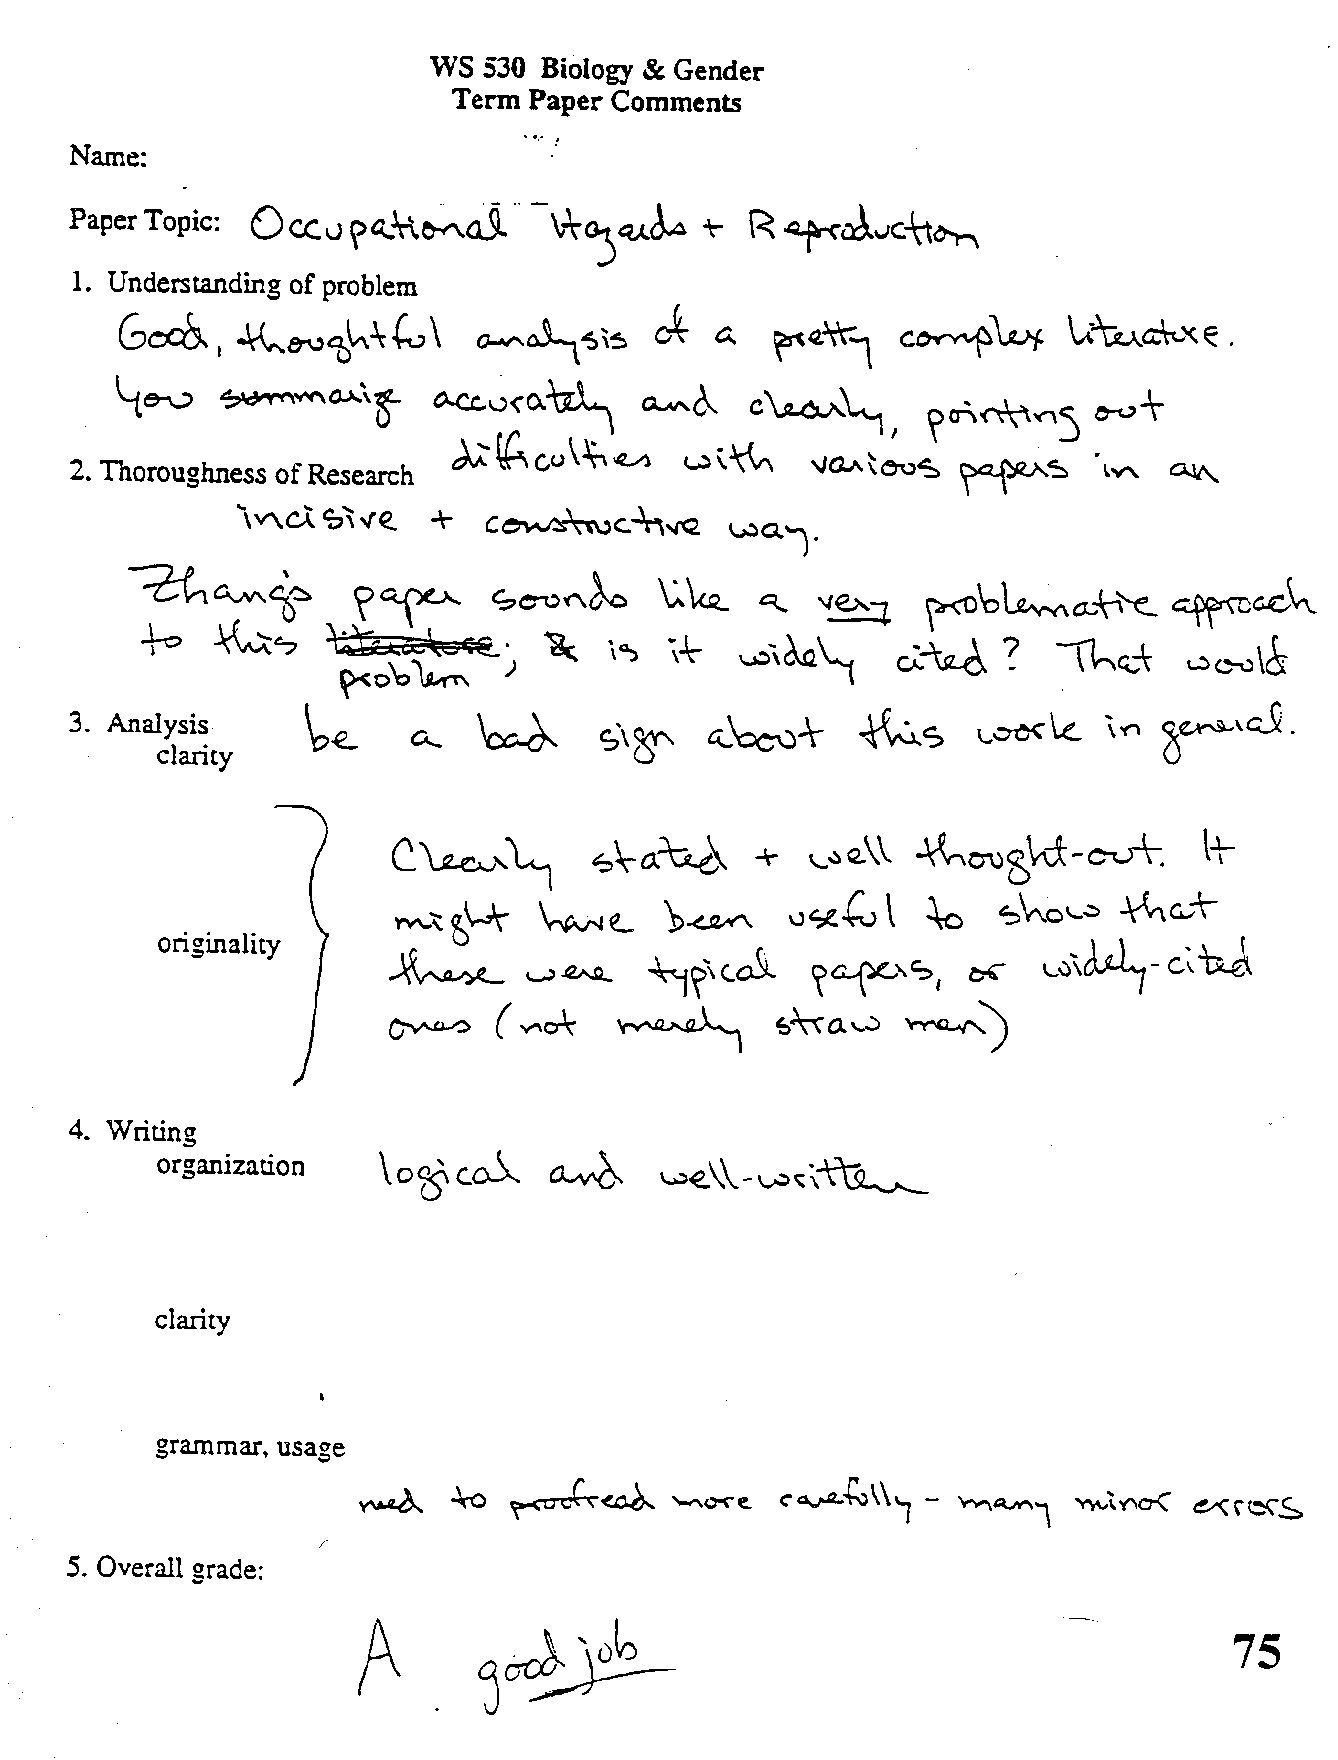 WS 530 Biology & Gender
Term Paper Comments
Name:
Paper Topic: Occupational Hazards + Reproduction
1. Understanding of problem
Good, thoughtful analysis of a pretty complex literature.
You summarize accurately and clearly, pointing out
difficulties with various papers in an
2. Thoroughness of Research
incisive + constructive way.
Zhang's paper sounds like a very problematic approach
to this literature; & is it widely cited? That would
problem
3. Analysis be a bad sign about this work in general.
clarity
Clearly stated + well thought-out. It
might have been useful to show that
originality
these were typical papers, or widely-cited
ones (not merely straw men)
4. Writing
organization logical and well-written
clarity
grammar, usage
need to proofread more carefully - many minor errors
5. Overall grade:
A good job
75